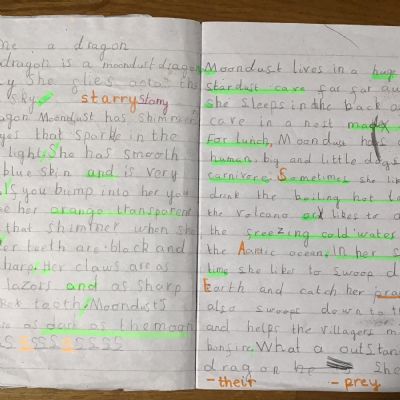 me a dragon
dragon is a moondust dragon
she flies onto the
sky starry Starry
Moondust has shimmer
eyes that sparkle in the
light, She has smooth
blue skin and is very
you bump into her you
see her orange transparent
that shimmer when she
Her teeth are black and
sharp. Her claws are as
lazors and as sharp
T-Rex teeth, Moondust's
as far as the moon
SSSSSSS
Moondust lives in a huge
stardust cave far far
she sleeps in the back
cave in a nest
For lunch, Moondust
human, big and little dogs
carnivore. Sometimes she
drink the boiling hot
the volcano and likes to
the freezing cold waters
the Artic ocean. In her
time she likes to swoop
Earth and catch her
also swoops down to
and helps the villagers
bonfire. What a
dragon She
-their
-prey